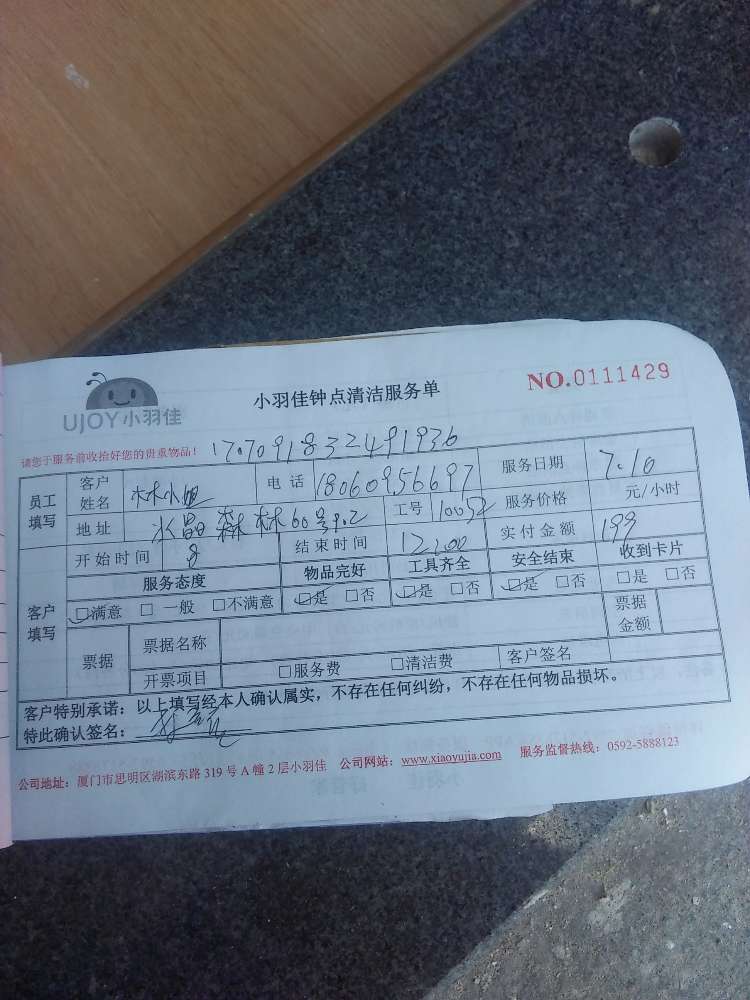 UJOY小羽佳
小羽佳钟点清洁服务单
NO.0111429
请您于服务前收拾好您的贵重物品！ 17070918322491936
员工填写 客户姓名 林小姐 电话 18060956697 服务日期 7.10
地址 水晶森林60号 工号 10052 服务价格 元/小时
客户填写 开始时间 8 结束时间 12:00 实付金额 199
服务态度 物品完好 工具齐全 安全结束 收到卡片
☑满意 □一般 □不满意 ☑是 □否 ☑是 □否 ☑是 □否 □是 □否
票据 票据名称 票据金额
开票项目 □服务费 □清洁费 客户签名
客户特别承诺：以上填写经本人确认属实，不存在任何纠纷，不存在任何物品损坏。
特此确认签名：
公司地址：厦门市思明区湖滨东路319号A幢2层小羽佳 公司网站：www.xiaoyujia.com 服务监督热线：0592-5888123